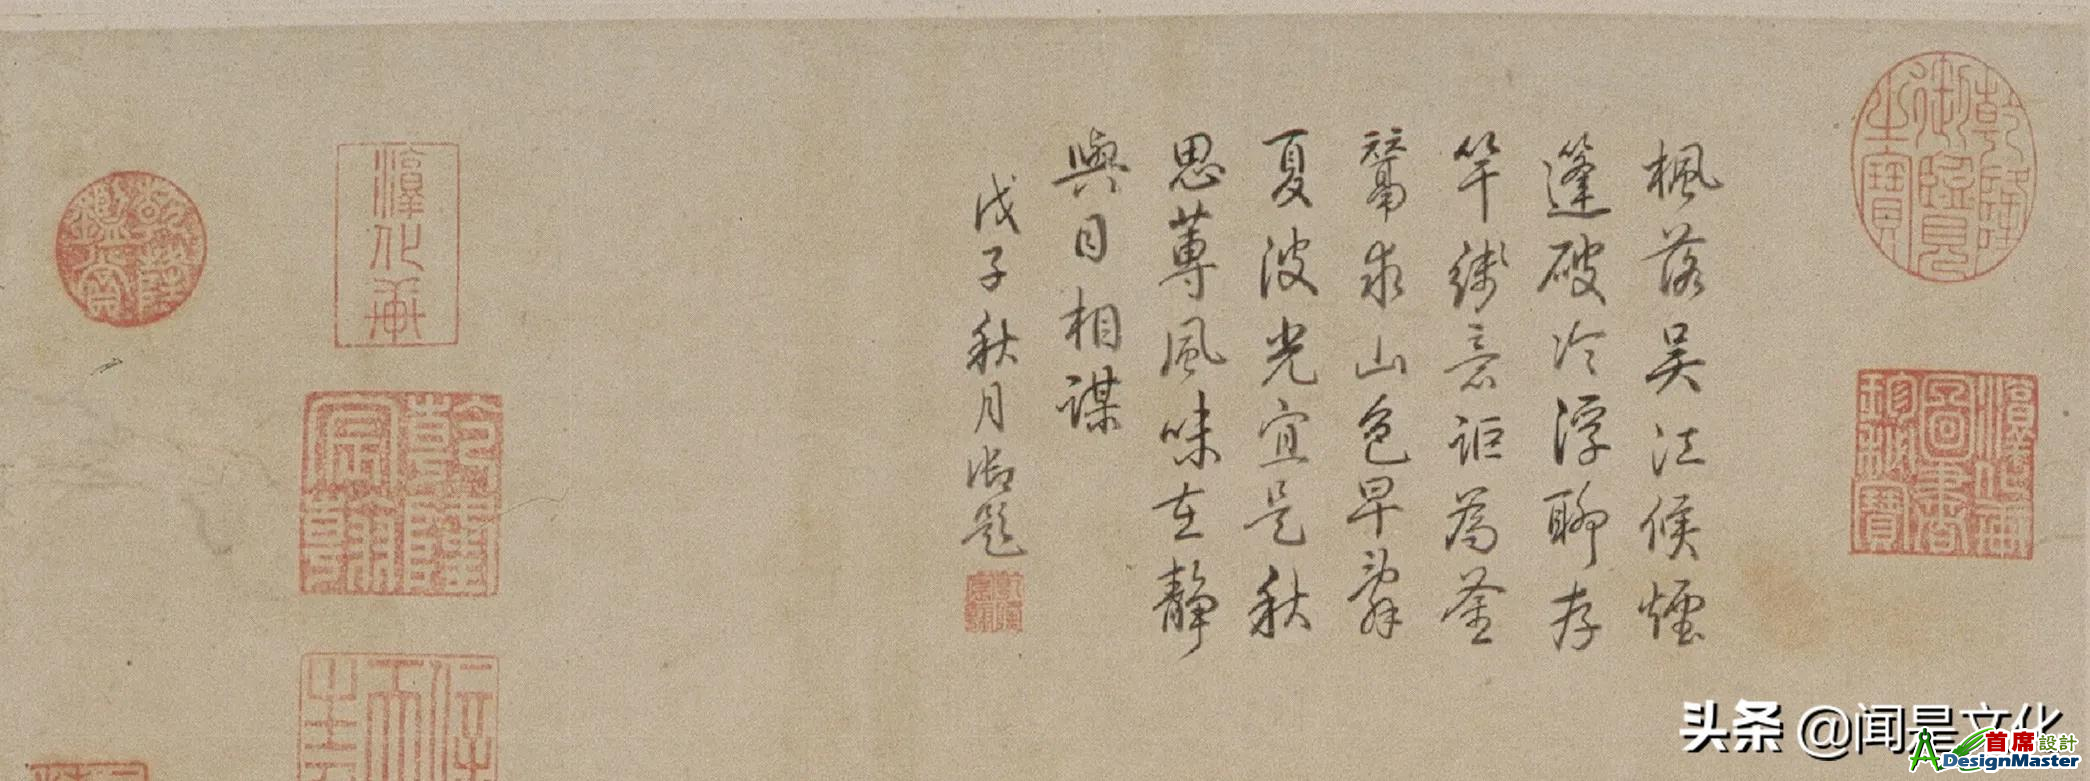 乾隆御覽之寶
淳化軒圖書珍秘寶
楓落吴江候煙
篷破冷浮聊存
竿綫意詎為荃
鬵求山色早辭
夏波光宜是秋
思蓴風味在静
與目相謀
戊子秋月御題
乾隆宸翰
淳化軒
乾隆宸翰
乾隆鑑賞
头条 @闻是文化
首席設計
ADesignMaster